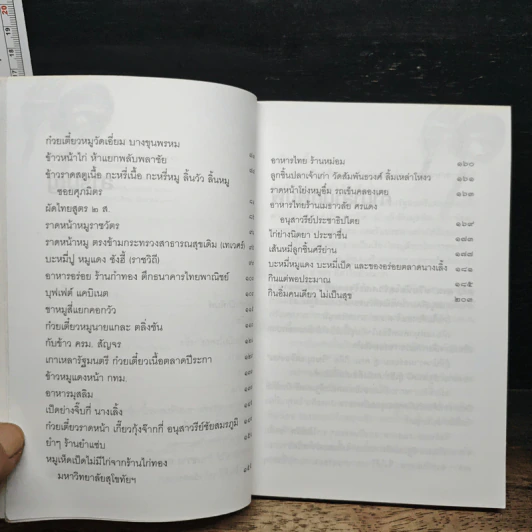 ก๋วยเตี๋ยวหมูวัดเอี่ยม บางขุนพรหม
ข้าวหน้าไก่ ห้าแยกพลับพลาชัย
ข้าวราดสตูเนื้อ กะหรี่เนื้อ กะหรี่หมู ลิ้นวัว ลิ้นหมู
ซอยศุภมิตร
ผัดไทยสูตร ๒ ส.
ราดหน้าหมูราชวัตร
ราดหน้าหมู ตรงข้ามกระทรวงสาธารณสุขเดิม (เทเวศร์)
บะหมี่ปู หมูแดง ซังฮี้ (ราชวิถี)
อาหารอร่อย ร้านกำทอง ตึกธนาคารไทยพาณิชย์
บุฟเฟต์ แคบิเนต
ขาหมูสี่แยกคอกวัว
ก๋วยเตี๋ยวหมูนายแกละ ตลิ่งชัน
กับข้าว ครม. สัญจร
เกาเหลารัฐมนตรี ก๋วยเตี๋ยวเนื้อตลาดปีระกา
ข้าวหมูแดงหน้า กทม.
อาหารมุสลิม
เป็ดย่างจิ๊บกี่ นางเลิ้ง
ก๋วยเตี๋ยวราดหน้า เกี๊ยวกุ้งจ๊ากกี่ อนุสาวรีย์ชัยสมรภูมิ
ยำๆ ร้านยำแซ่บ
หมูเห็ดเป็ดไม่มีไก่จากร้านไก่ทอง
มหาวิทยาลัยสุโขทัยฯ
อาหารไทย ร้านหม่อม ๑๖๐
ลูกชิ้นปลาเจ้าเก่า วัดสัมพันธวงศ์ ลิ้มเหล่าโหงว ๑๖๑
ราดหน้าโย่งหมูอื่ม รถเข็นคลองเตย ๑๖๓
อาหารไทยร้านเมธาวลัย ศรแดง
อนุสาวรีย์ประชาธิปไตย ๑๖๙
ไก่ย่างนิตยา ประชาชื่น ๑๗๓
เส้นหมี่ลูกชิ้นศรีย่าน ๑๗๘
บะหมี่หมูแดง บะหมี่เป็ด และของอร่อยตลาดนางเลิ้ง ๑๘๑
กินแต่พอประมาณ ๑๘๕
กินอิ่มคนเดียว ไม่เป็นสุข ๒๐๑